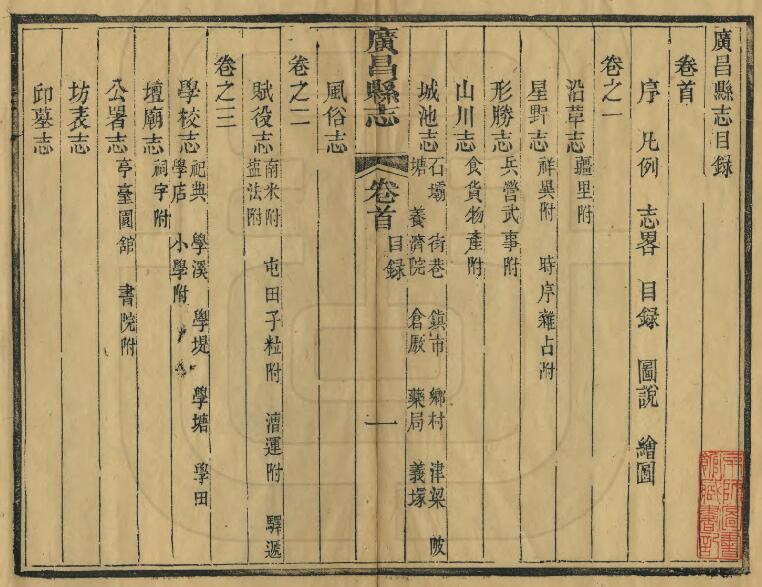 廣昌縣志目録
卷首
序 凡例 志畧 目録 圖說 繪圖
卷之一
沿革志 疆里附
星野志 祥異附 時序雜占附
形勝志 兵營武事附
山川志 食貨物產附
城池志 石壩 街巷 鎮市 鄉村 津梁 陂
塘 養濟院 倉厫 藥局 義塚
廣昌縣志 卷首 目録 一
風俗志
卷之二
賦役志 南米附 屯田子粒附 漕運附 驛遞
鹽法附
卷之三
學校志 祀典 學溪 學堤 學塘 學田
學店 小學附
壇廟志 祠宇附
公署志 亭臺園舘 書院附
坊表志
邱墓志